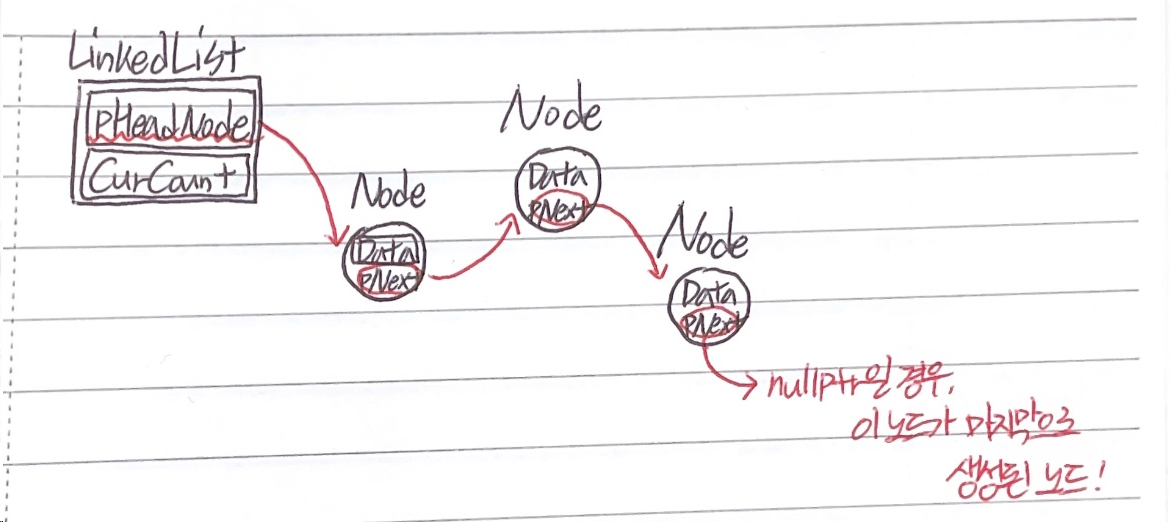 LinkedList
pHeadNode
CurCount
Node
Data
pNext
Node
Data
pNext
Node
Data
pNext
nullptr일 경우,
이 노드가 마지막으로
생성된 노드!